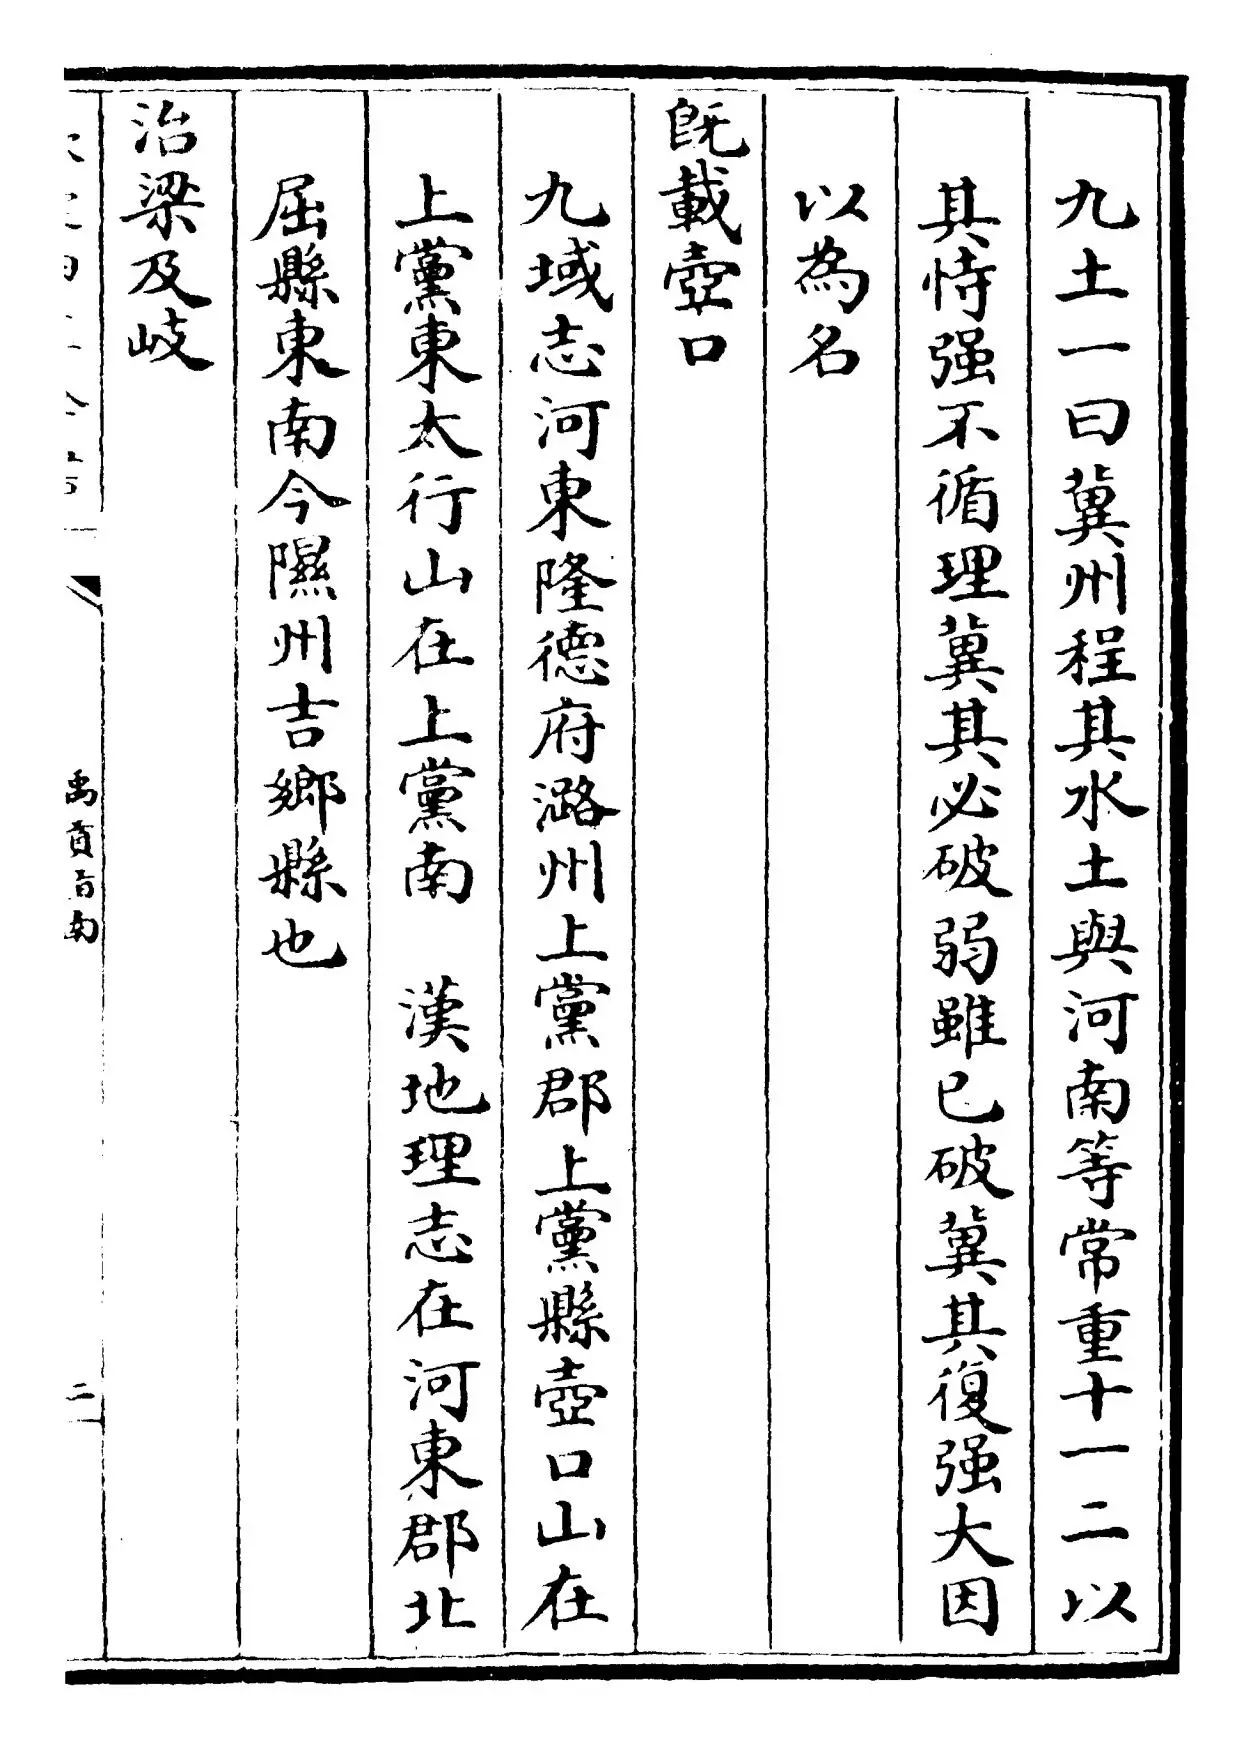 九土一曰冀州程其水土與河南等常重十一二以
其恃强不循理冀其必破弱雖已破冀其復强大因
以為名
既載壺口
九域志河東隆德府潞州上黨郡上黨縣壺口山在
上黨東太行山在上黨南　漢地理志在河東郡北
屈縣東南今隰州吉鄉縣也
治梁及岐
禹貢指南
二